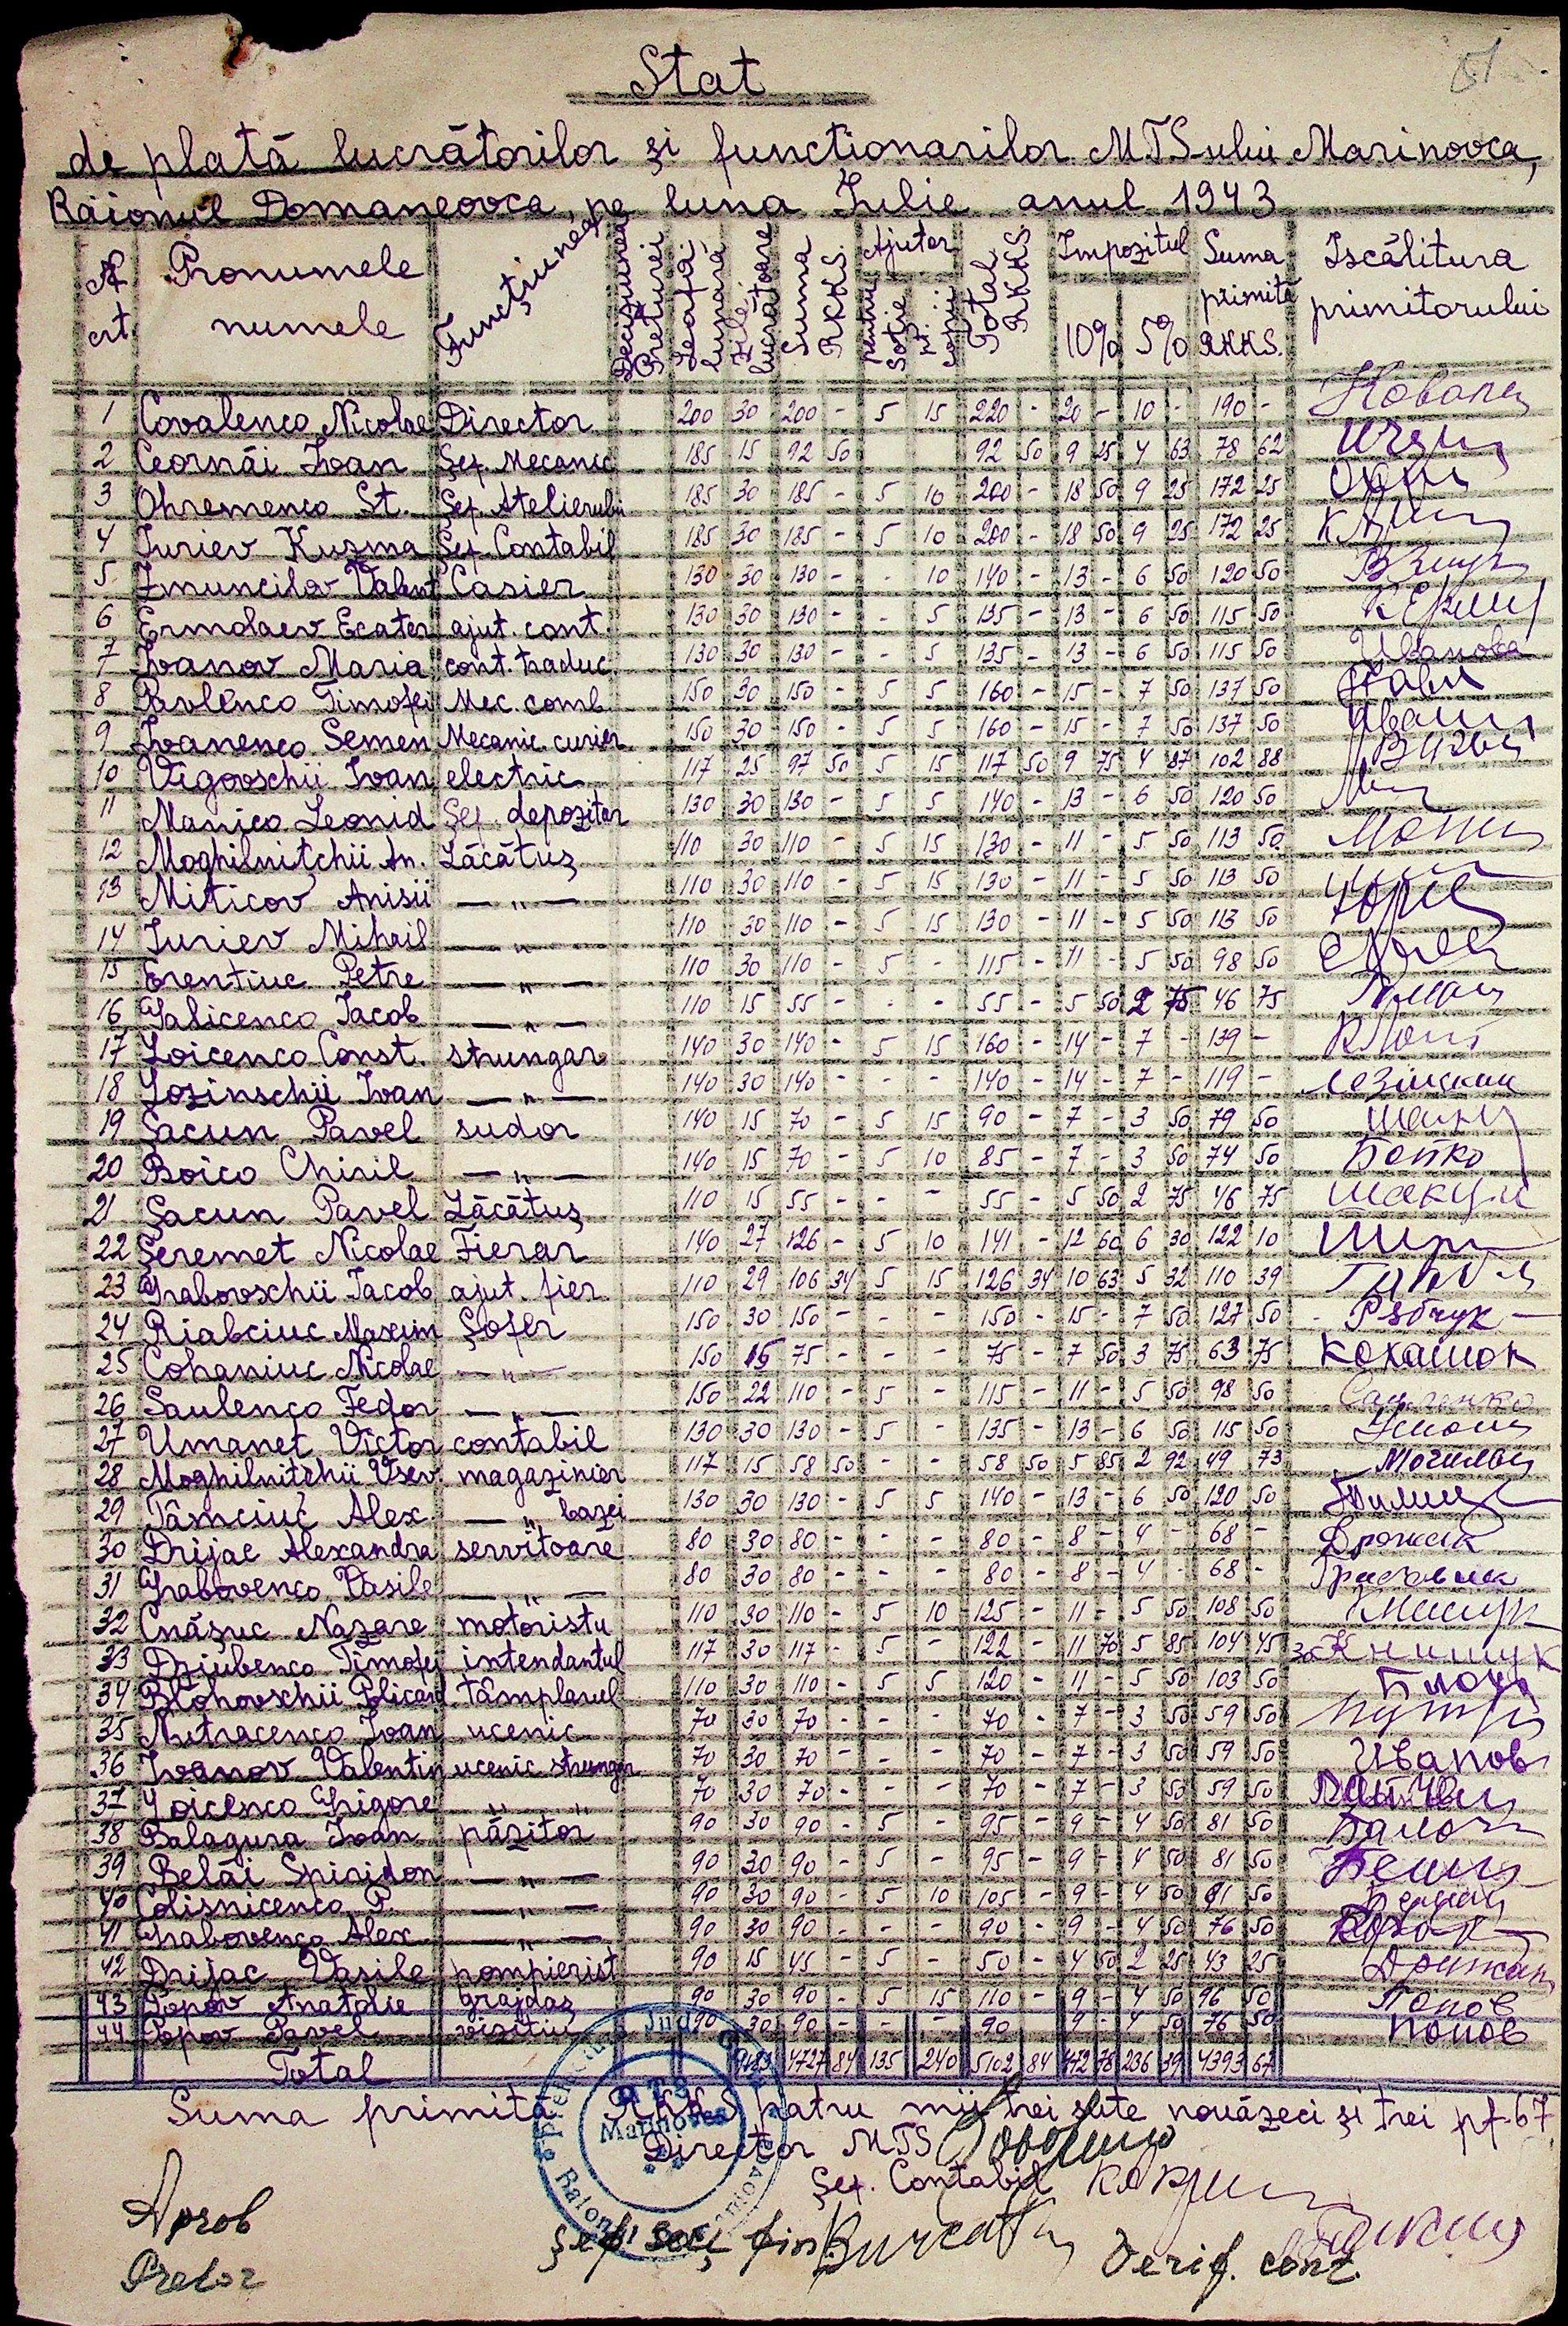 Stat
de plată lucrătorilor și functionarilor MTSului Marinovca,
Raionul Domaneovca, pe luna Iulie anul 1943
№ crt. Pronumele numele Funcțiunea Deciziunea Preturei Leafa lunară Zile lucrătoare Suma RKKS. Ajutor pentru soție pt. copii Total RKKS. Impozitul 10% 5% Suma primită RKKS. Iscălitura primitorului
1 Covalenco Nicolae Director 200 30 200 - 5 15 220 - 20 - 10 - 190 -
2 Ceornăi Ivan Șef. Mecanic 185 15 92 50 92 50 9 25 4 63 78 62
3 Ohremenco St. Șef Atelierului 185 30 185 - 5 10 200 - 18 50 9 25 172 25
4 Iuriev Kuzma Șef. Contabil 185 30 185 - 5 10 200 - 18 50 9 25 172 25
5 Casier 130 30 130 - - 10 140 - 13 - 6 50 120 50
6 Ermolaev Ecater ajut. cont. 130 30 130 - - 5 135 - 13 - 6 50 115 50
7 Ivanov Maria cont. traduc. 130 30 130 - - 5 135 - 13 - 6 50 115 50 Иванова
8 Pavlenco Timofei Mec. comb. 150 30 150 - 5 5 160 - 15 - 7 50 137 50
9 Ivanenco Semen Mecanic. curier 150 30 150 - 5 5 160 - 15 - 7 50 137 50
10 Vigovschii Ivan electric 117 25 97 50 5 15 117 50 9 75 4 87 102 88
11 Manico Leonid Șef. depozitar 130 30 130 - 5 5 140 - 13 - 6 50 120 50
12 Moghilnitchii An. Lăcătuș 110 30 110 - 5 15 130 - 11 - 5 50 113 50
13 Miticov Anisii — " — 110 30 110 - 5 15 130 - 11 - 5 50 113 50
14 Iuriev Mihail — " — 110 30 110 - 5 15 130 - 11 - 5 50 113 50
15 Erentiuc Petre — " — 110 30 110 - 5 - 115 - 11 - 5 50 98 50
16 Galicenco Iacob — " — 110 15 55 - - - 55 - 5 50 2 75 46 75
17 Loicenco Const. strungar 140 30 140 - 5 15 160 - 14 - 7 - 139 -
18 Lozinschii Ivan — " — 140 30 140 - - - 140 - 14 - 7 - 119 -
19 Șacun Pavel sudor 140 15 70 - 5 15 90 - 7 - 3 50 79 50
20 Boico Chiril — " — 140 15 70 - 5 10 85 - 7 - 3 50 74 50 Бойко
21 Șacun Pavel Lăcătuș 110 15 55 - - - 55 - 5 50 2 75 46 75 Шакун
22 Șeremet Nicolae Fierar 140 27 126 - 5 10 141 - 12 60 6 30 122 10
23 Grabovschii Iacob ajut. fier. 110 29 106 34 5 15 126 34 10 63 5 32 110 39
24 Riabciuc Maxim Șofer 150 30 150 - - - 150 - 15 - 7 50 127 50 Рябчук
25 Cohaniuc Nicolae — " — 150 15 75 - - - 75 - 7 50 3 75 63 75 Коханюк
26 Saulenco Fedor — " — 150 22 110 - 5 - 115 - 11 - 5 50 98 50
27 Umanet Victor contabil 130 30 130 - 5 - 135 - 13 - 6 50 115 50
28 Moghilnitchii Vsev. magaziner 117 15 58 50 - - 58 50 5 85 2 92 49 73
29 Tâmciuc Alex. — " bazei 130 30 130 - 5 5 140 - 13 - 6 50 120 50
30 Drijac Alexandra servitoare 80 30 80 - - - 80 - 8 - 4 - 68 -
31 Grabovenco Vasile — " — 80 30 80 - - - 80 - 8 - 4 - 68 -
32 Cnășuc Nazare motoristu 110 30 110 - 5 10 125 - 11 - 5 50 108 50
33 Dziubenco Timofei intendantul 117 30 117 - 5 - 122 - 11 70 5 85 104 45 за Книшук
34 Blohovschii Policarp tâmplarul 110 30 110 - 5 5 120 - 11 - 5 50 103 50
35 Mitracenco Ivan ucenic 70 30 70 - - - 70 - 7 - 3 50 59 50
36 Ivanov Valentin ucenic strungar 70 30 70 - - - 70 - 7 - 3 50 59 50 Иванов
37 Loicenco Grigore " " 70 30 70 - - - 70 - 7 - 3 50 59 50
38 Balagura Ivan păzitor 90 30 90 - 5 - 95 - 9 - 4 50 81 50
39 Belăi Spiridon — " — 90 30 90 - 5 - 95 - 9 - 4 50 81 50
40 Colisnicenco P. — " — 90 30 90 - 5 10 105 - 9 - 4 50 91 50
41 Grabovenco Alex. — " — 90 30 90 - - - 90 - 9 - 4 50 76 50
42 Drijac Vasile pompierist 90 15 45 - 5 - 50 - 4 50 2 25 43 25
43 Popov Anatolie grajdaș 90 30 90 - 5 15 110 - 9 - 4 50 96 50 Попов
44 Popov Pavel vizitiu 90 30 90 - - - 90 9 - 4 50 76 50 Попов
Total 4727 84 135 240 5102 84 472 78 236 39 4393 67
Suma primită RKKS patru mii trei sute nouăzeci și trei pf. 67
MTS Marinovca
Director MTS
Șef. Contabil
Aprob Șef secț fin. Verif. cont.
Pretor